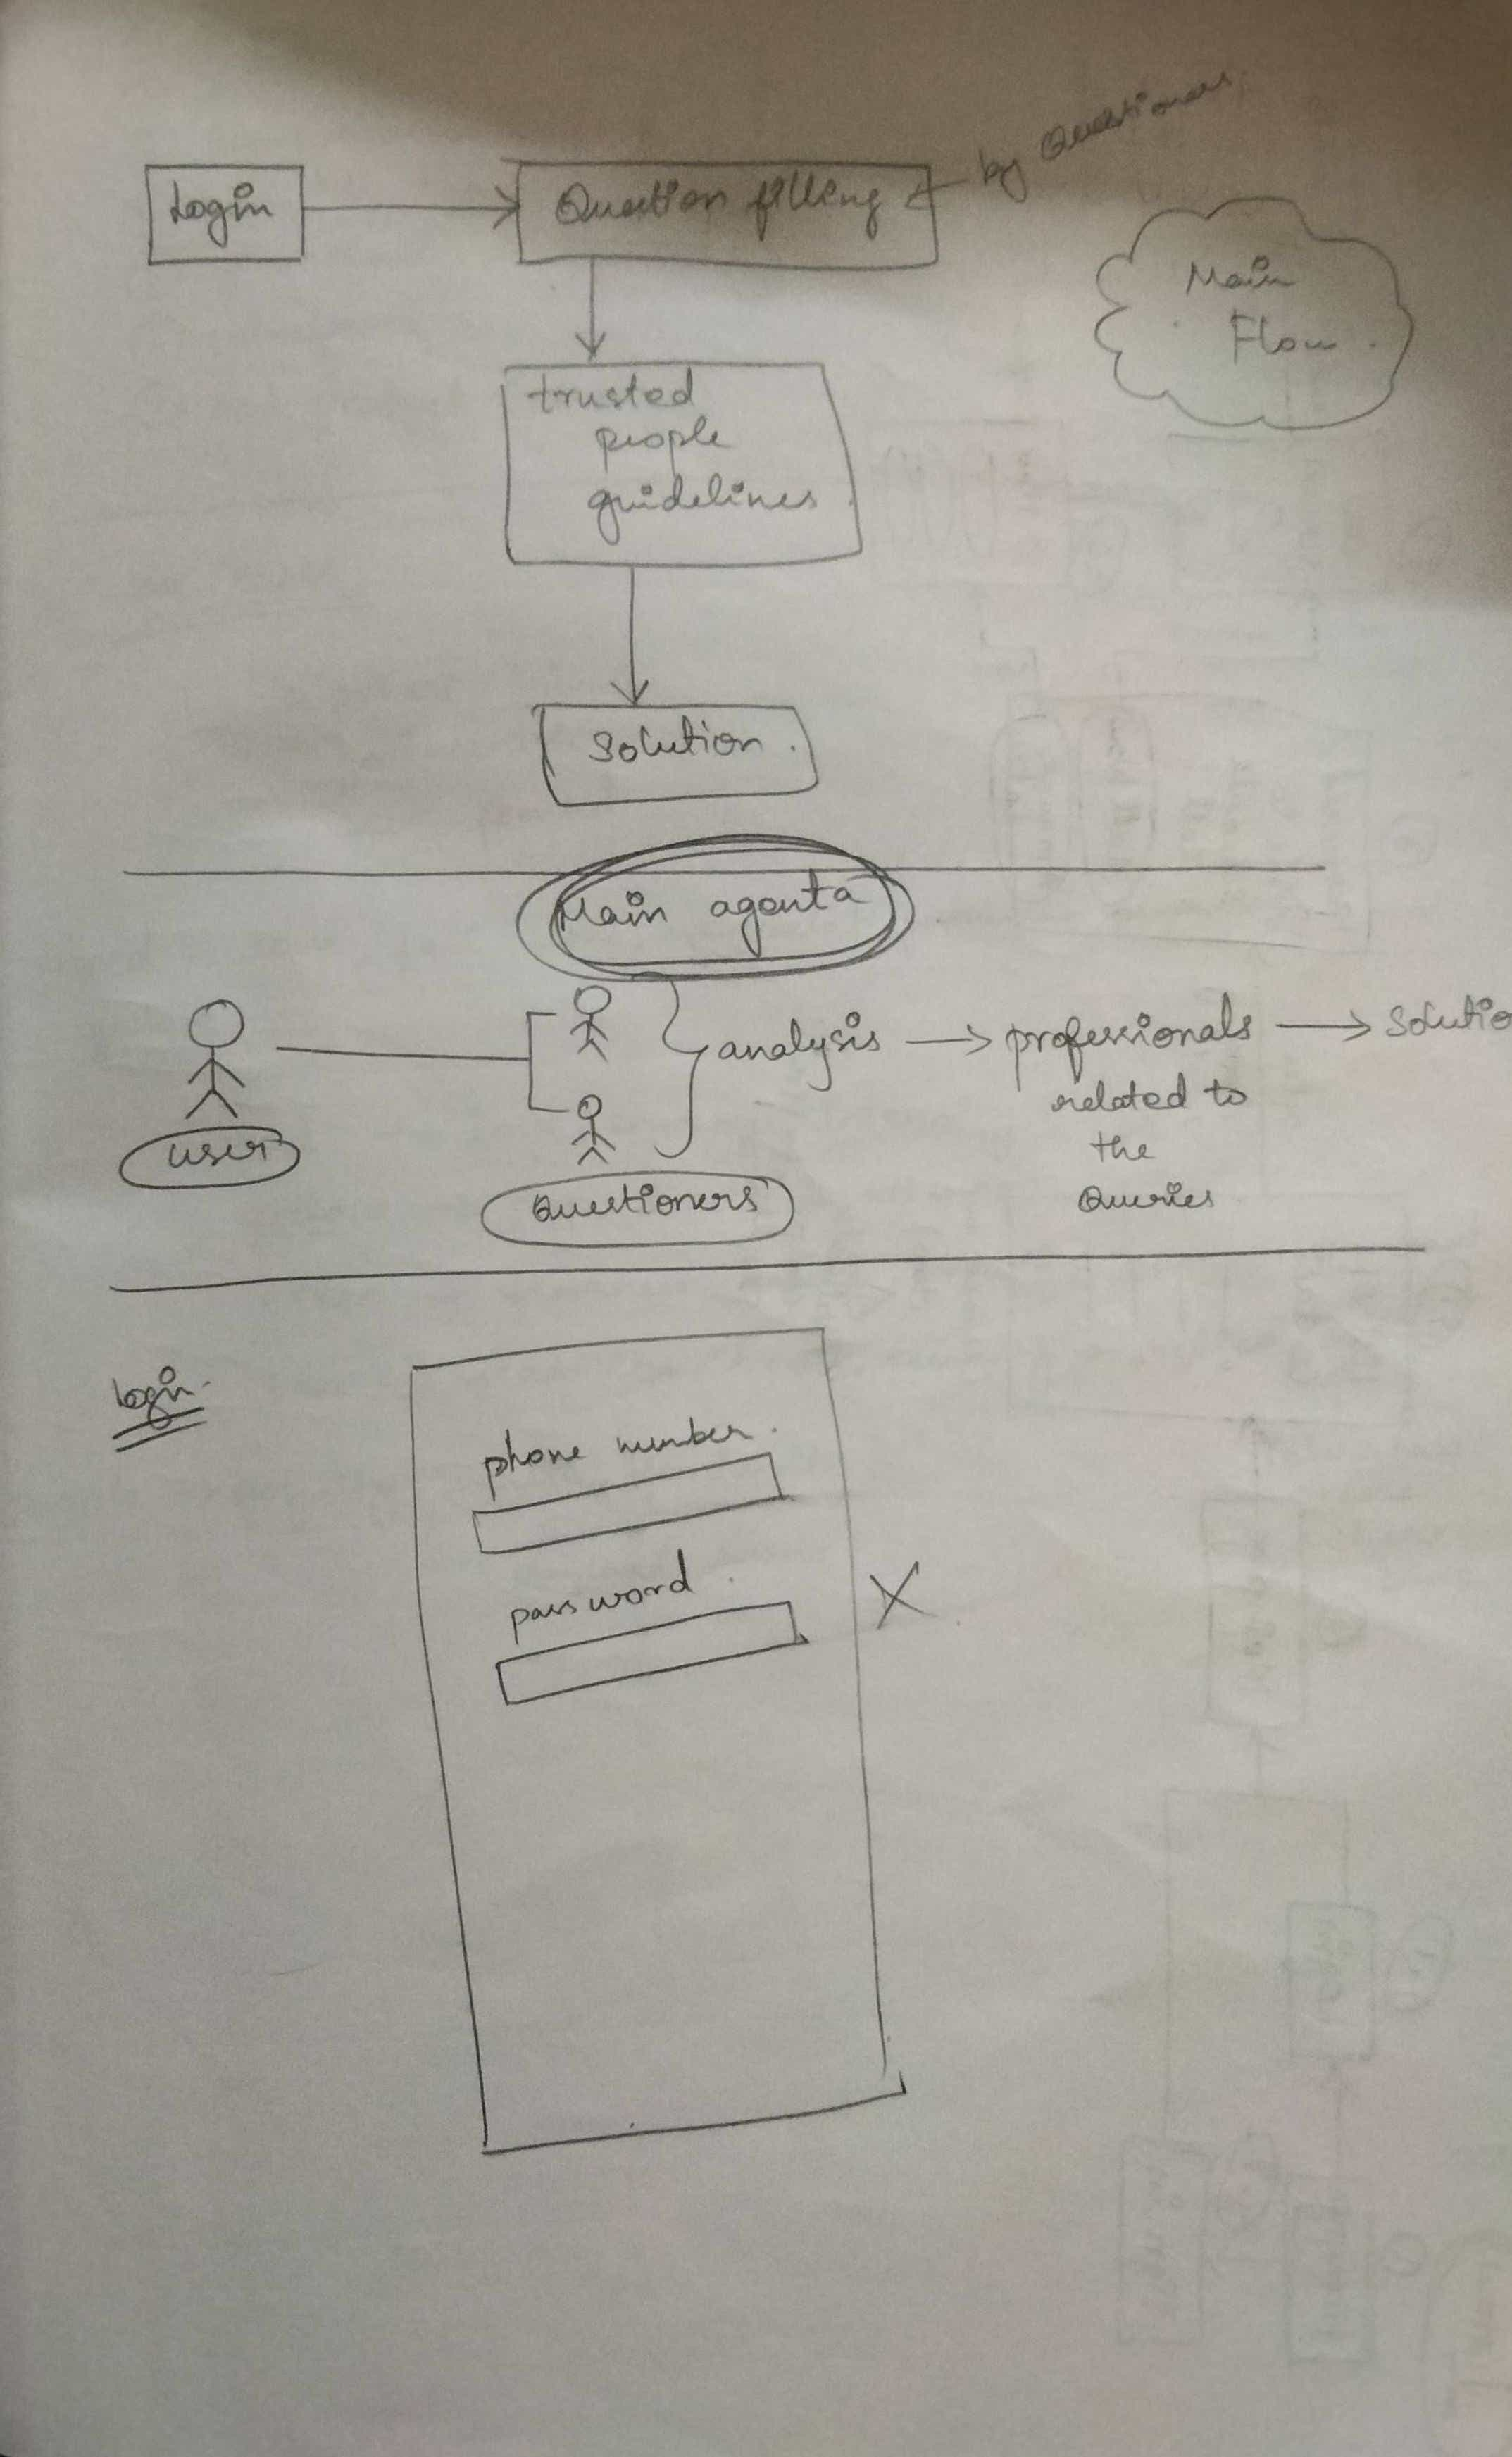 Login
Question filling
by Questioners
Main
Flow.
trusted
people
guidelines.
Solution.
Main agenta
analysis
professionals
Solutio
related to
the
Queries
user
Questioners
login.
phone number.
password
X